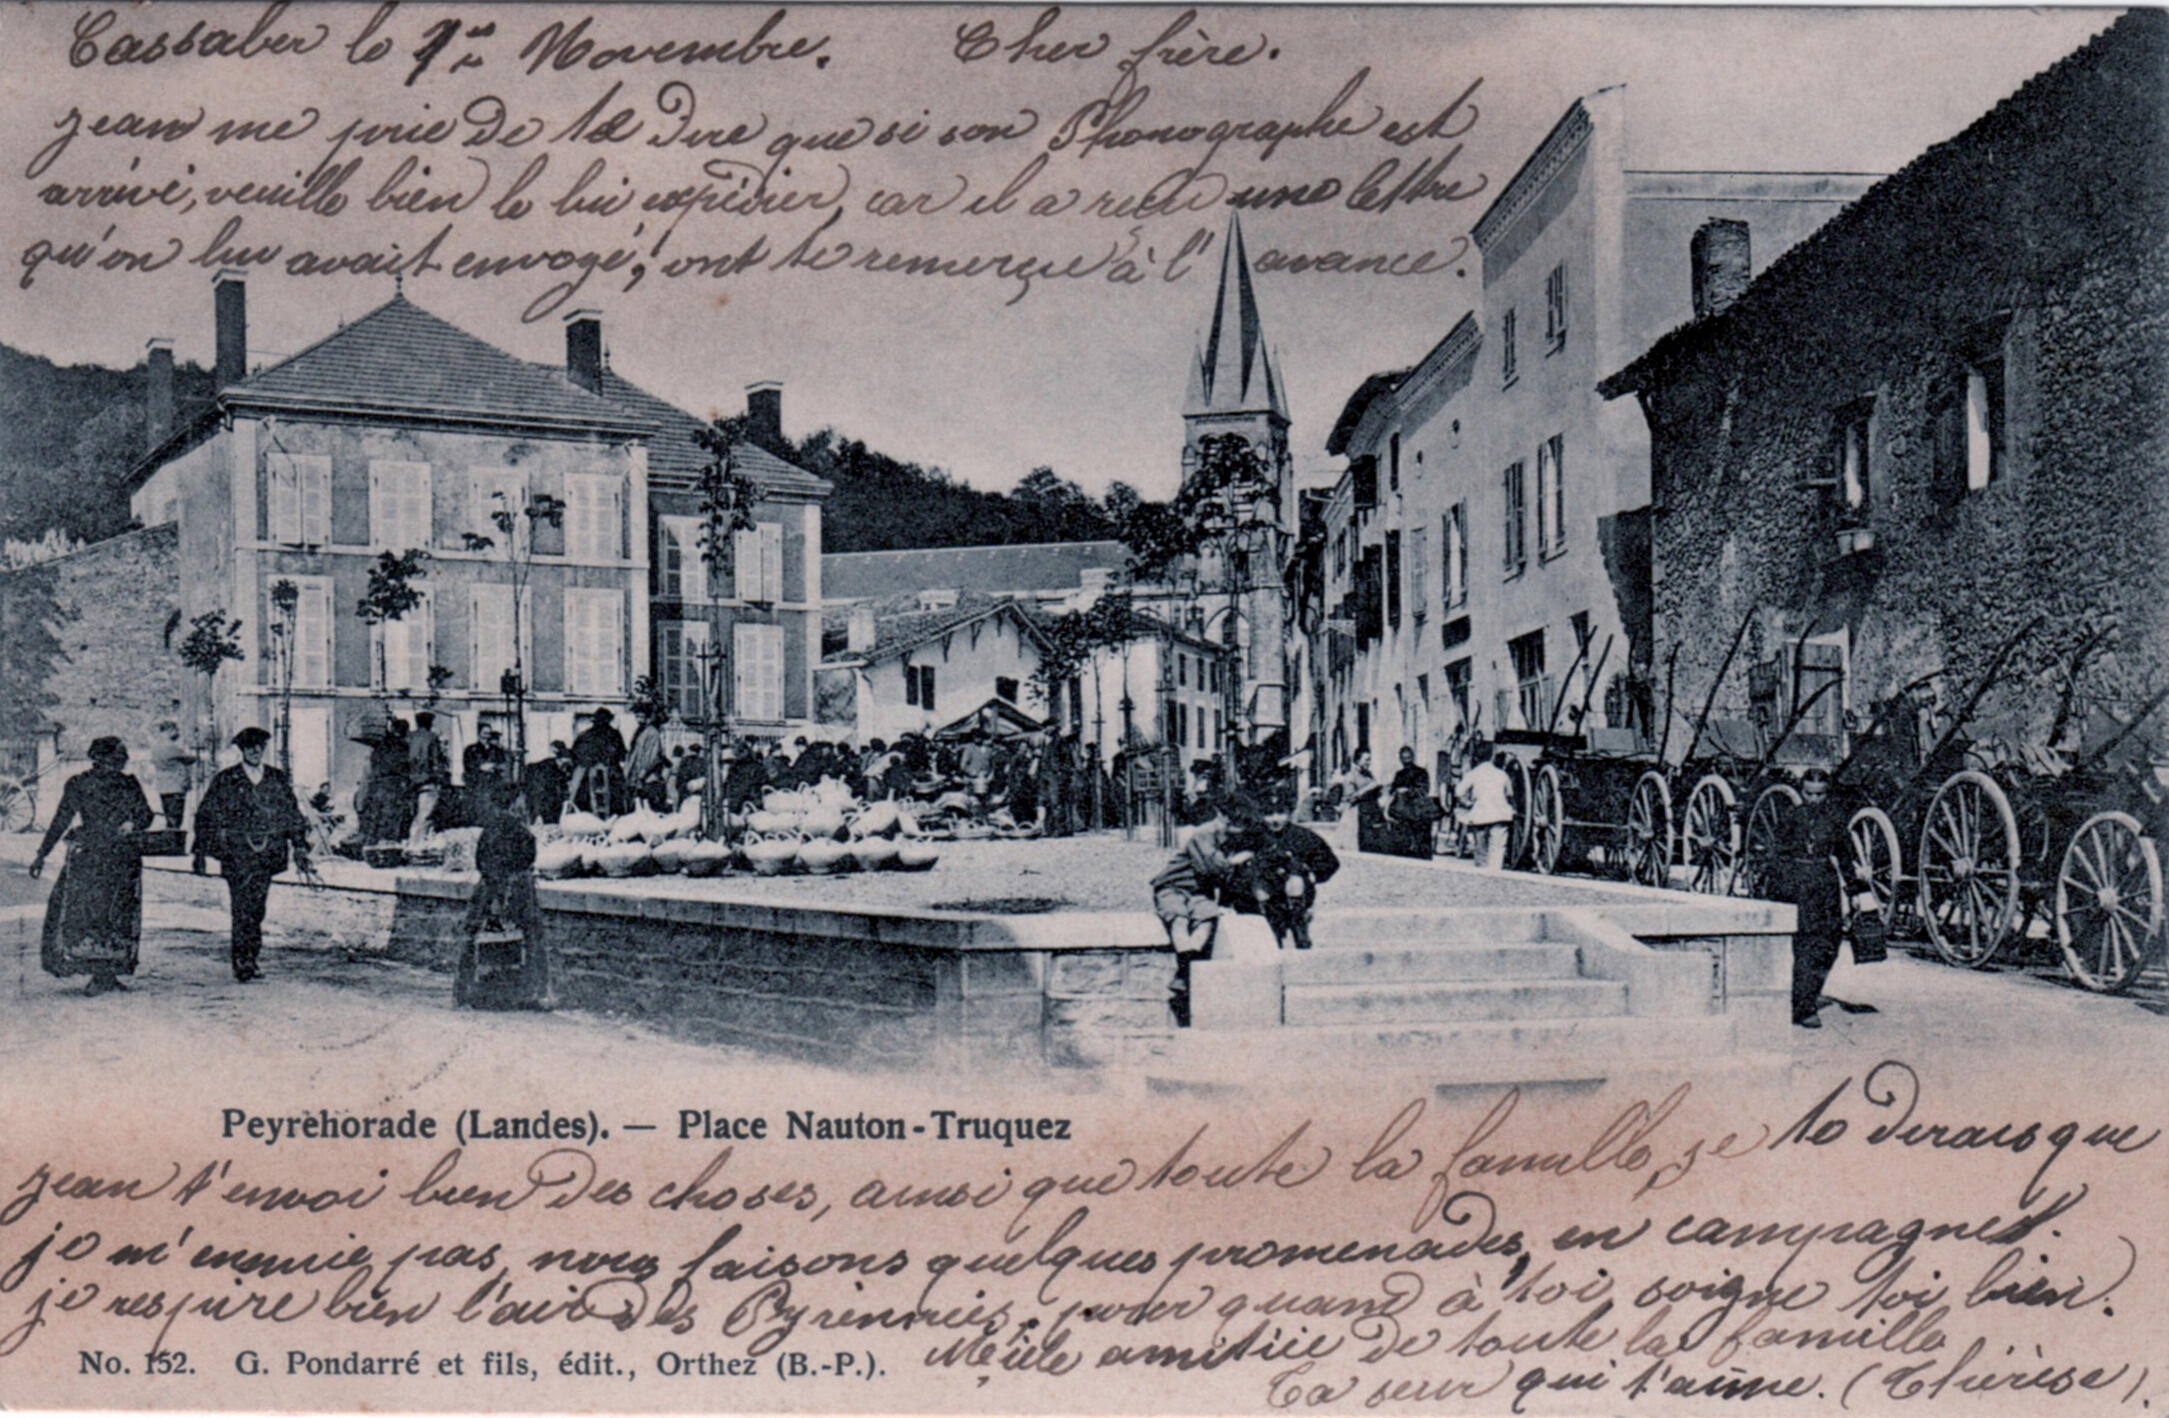 Cassaber le 1er Novembre. Cher frère.
Jean me prie de te dire que si son Phonographe est
arrivé, veuille bien le lui expédier, car il a reçu une lettre
qu'on lui avait envoyé, ont te remerçie à l'avance.
Peyrehorade (Landes). — Place Nauton-Truquez
Jean t'envoi bien des choses, ainsi que toute la famille, je te dirais que
je m'ennuie pas, nous faisons quelques promenades, en campagnes.
je respire bien l'air des Pyrénnées, pour quand à toi soigne toi bien.
amitiée de toute la famille
Ta seur qui t'aime. (Thérèse).
No. 152. G. Pondarré et fils, édit., Orthez (B.-P.).